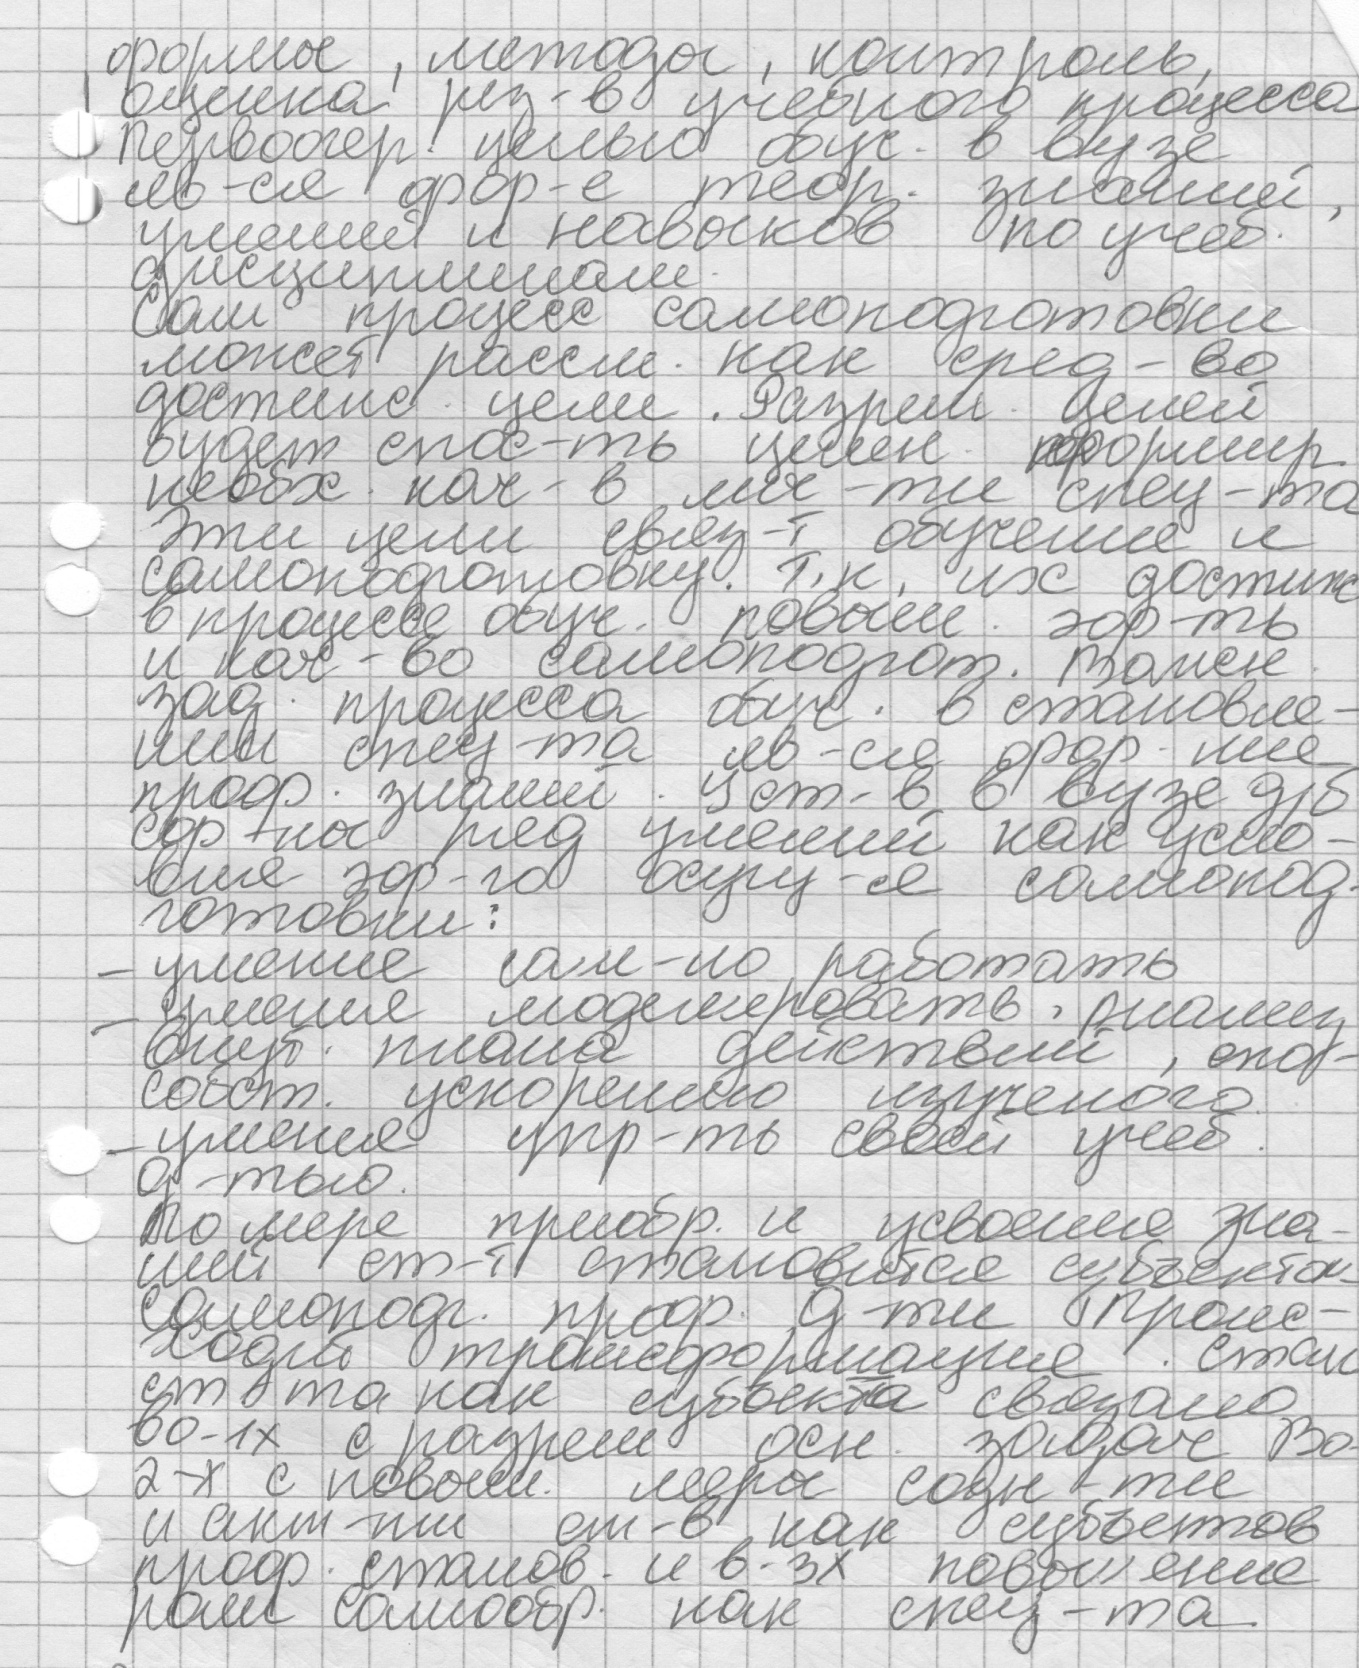 формы, методы, контроль,
оценка рез-в учебного процесса
Первоочер. целью обуч. в вузе
яв-ся фор-е теор. знаний,
умений и навыков по учеб.
дисциплинам.
Сам процесс самоподготовки
может рассм. как сред-во
достиж. цели. Разреш. целей
будет спос-ть целен. формир.
необх. кач-в лич-ти спец-та
Эти цели связ-т обучение и
самоподготовку. Т.к. их достиж
в процессе обуч. повыш. эф-ть
и кач-во самоподгот. Важн.
зад. процесса обуч. в становле-
нии спец-та яв-ся фор-ние
проф. знаний. У ст-в в вузе д/б
сф-ны ряд умений как усло-
вие эф-го осущ-я самопод-
готовки:
- умение сам-но работать
- умение моделировать,
внут. плана действий, спо-
собст. ускорению изученого
- умение упр-ть своей учеб.
д-тью.
По мере приобр. и усвоение зна-
ний ст-т становится субъектом
самоподг. проф. д-ти Проис-
ходит трансформация. Стан
ст-та как субъекта связано
во-1х с разреш осн. задач Во-
2-х с повыш. меры созн-ти
и акт-ти ст-в как субъектов
проф. станов. и в-3х повышение
роли самообр. как спец-та.